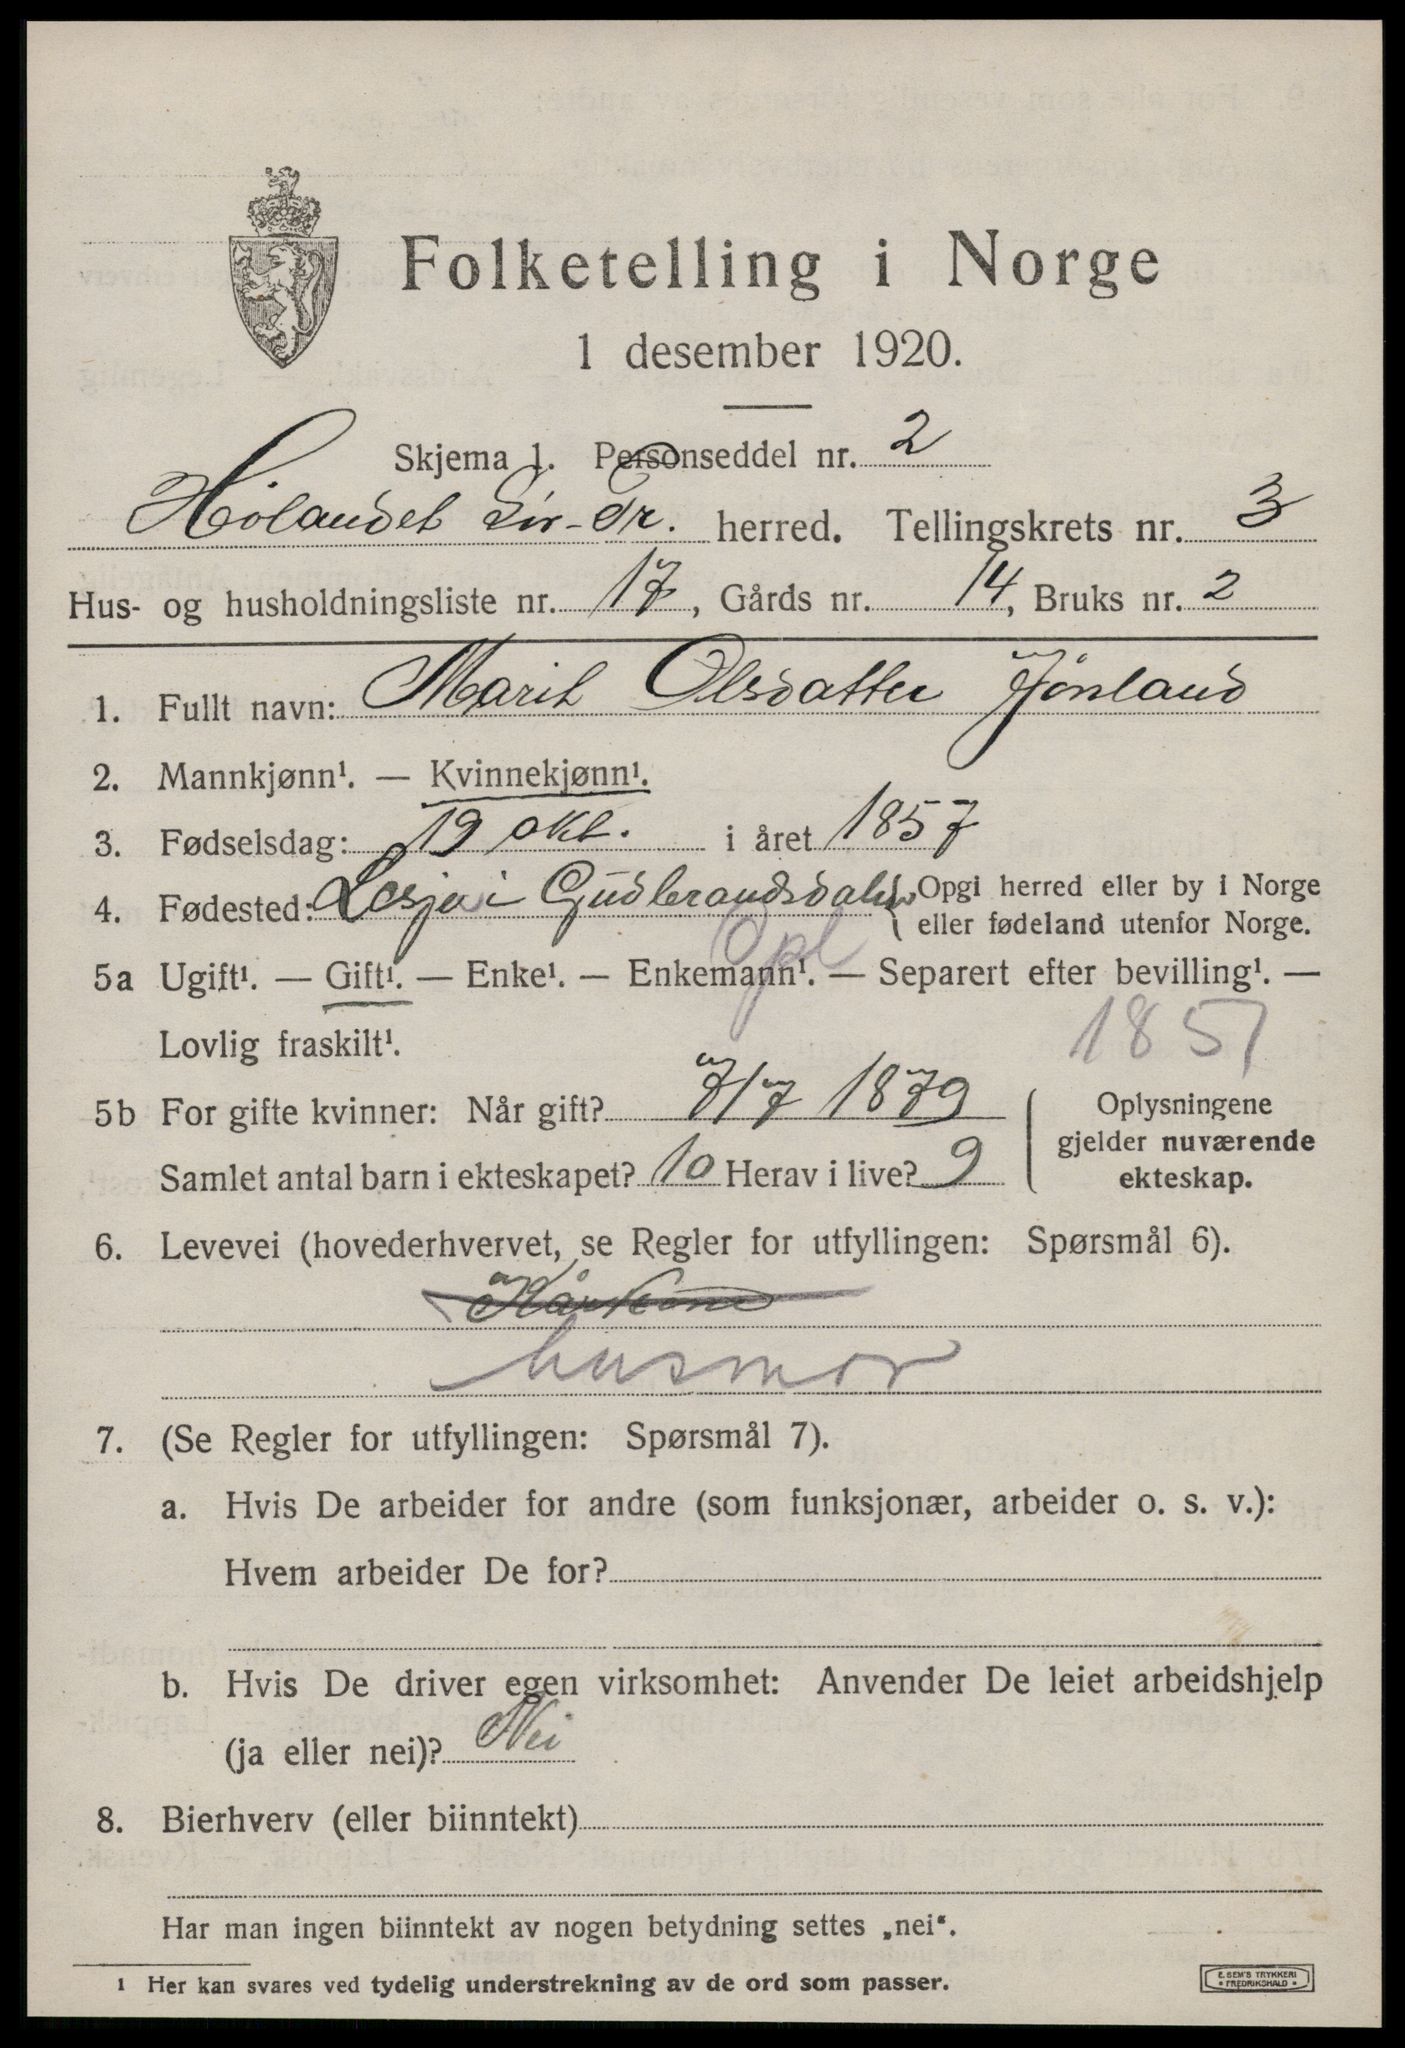 Folketelling i Norge
1 desember 1920.
Skjema 1. Personseddel nr. 2
Hølandet Sör-Tr. herred. Tellingskrets nr. 3
Hus- og husholdningsliste nr. 17, Gårds nr. 14, Bruks nr. 2
1. Fullt navn: Marit Olsdatter
2. Mannkjønn¹. — Kvinnekjønn¹.
3. Fødselsdag: 19 okt. i året 1857
4. Fødested: Lesja i Gudbrandsdalen { Opgi herred eller by i Norge
eller fødeland utenfor Norge.
Opl
5a Ugift¹. — Gift¹. — Enke¹. — Enkemann¹. — Separert efter bevilling¹. —
Lovlig fraskilt¹.
1857
5b For gifte kvinner: Når gift? 7/7 1879
Samlet antal barn i ekteskapet? 10 Herav i live? 9
Oplysningene
gjelder nuværende
ekteskap.
6. Levevei (hovederhvervet, se Regler for utfyllingen: Spørsmål 6).
Kårkone
husmor
7. (Se Regler for utfyllingen: Spørsmål 7).
a. Hvis De arbeider for andre (som funksjonær, arbeider o. s. v.):
Hvem arbeider De for?
b. Hvis De driver egen virksomhet: Anvender De leiet arbeidshjelp
(ja eller nei)? Nei
8. Bierhverv (eller biinntekt)
Har man ingen biinntekt av nogen betydning settes „nei“.
¹ Her kan svares ved tydelig understrekning av de ord som passer.
E. SEM'S TRYKKERI
• FREDRIKSHALD •